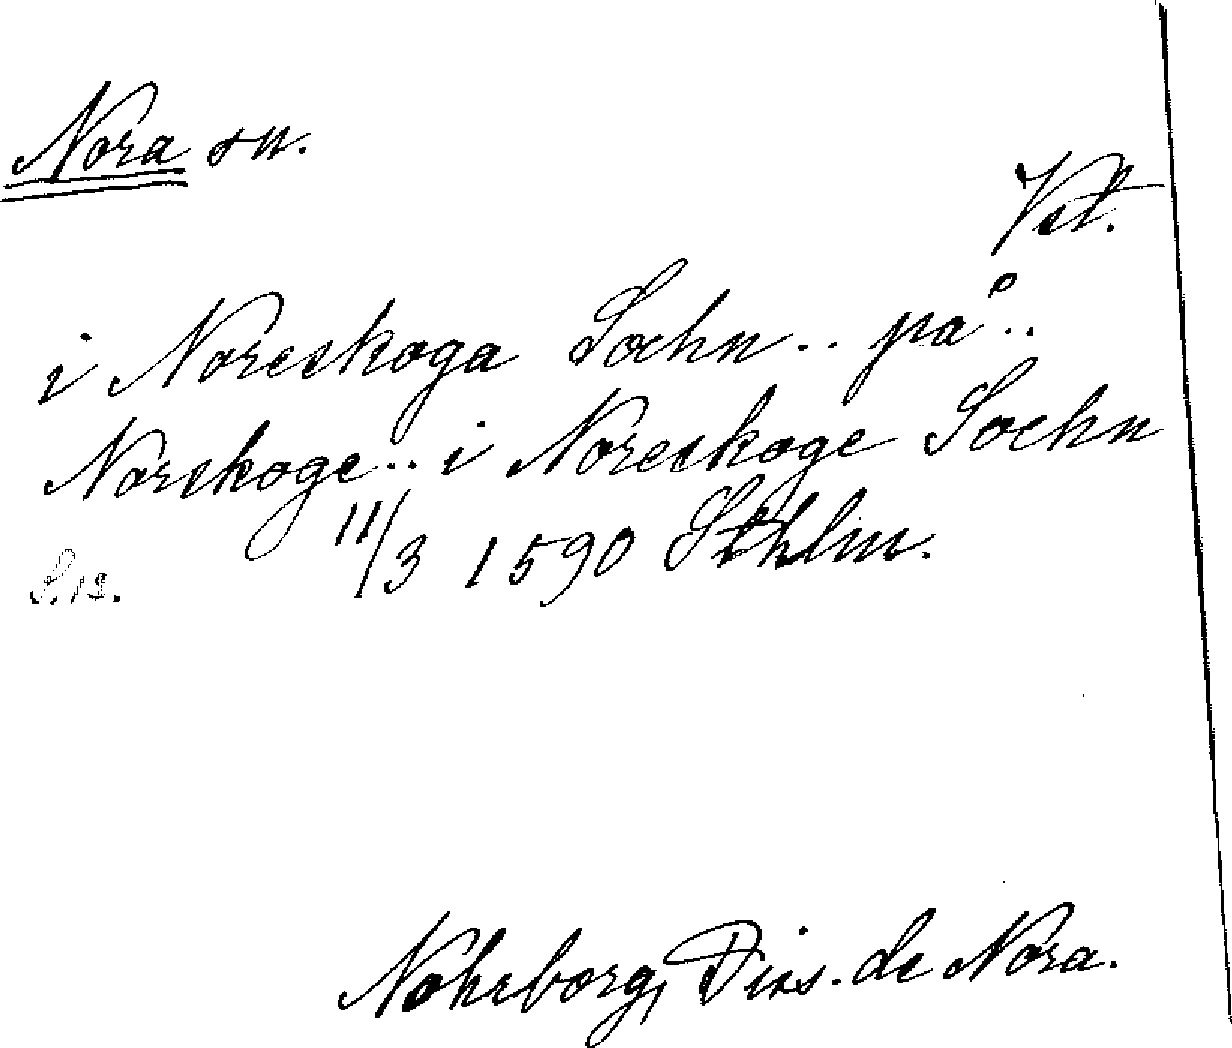 Nora sn.
Vst.
i Noreskoga Sochn .. på ..
Norskoge .. i Noreskoge Sochn
11/3 1590 Sthlm.
S. 12.
Nohrborg, Diss. de Nora.